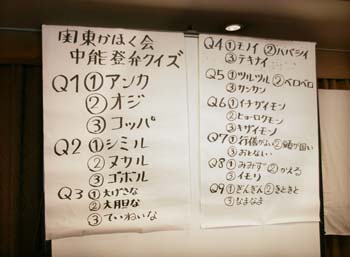 関東かほく会
中能登弁クイズ
Q1①アンカ
②オジ
③コッパ
Q2①シミル
②ヌサル
③ゴボル
Q3①大げさな
②大胆な
③ていねいな
Q4①モノイ②ハバシイ
③テキナイ
Q5①ツルツル②ベロベロ
③サンサン
Q6①イチガイモン
②ヒョーロクモン
③キザイモン
Q7①行儀がいい②頭が固い
③おとない
Q8①みみず②かえる
③イモリ
Q9①ぎんぎん②きときと
③なまなま